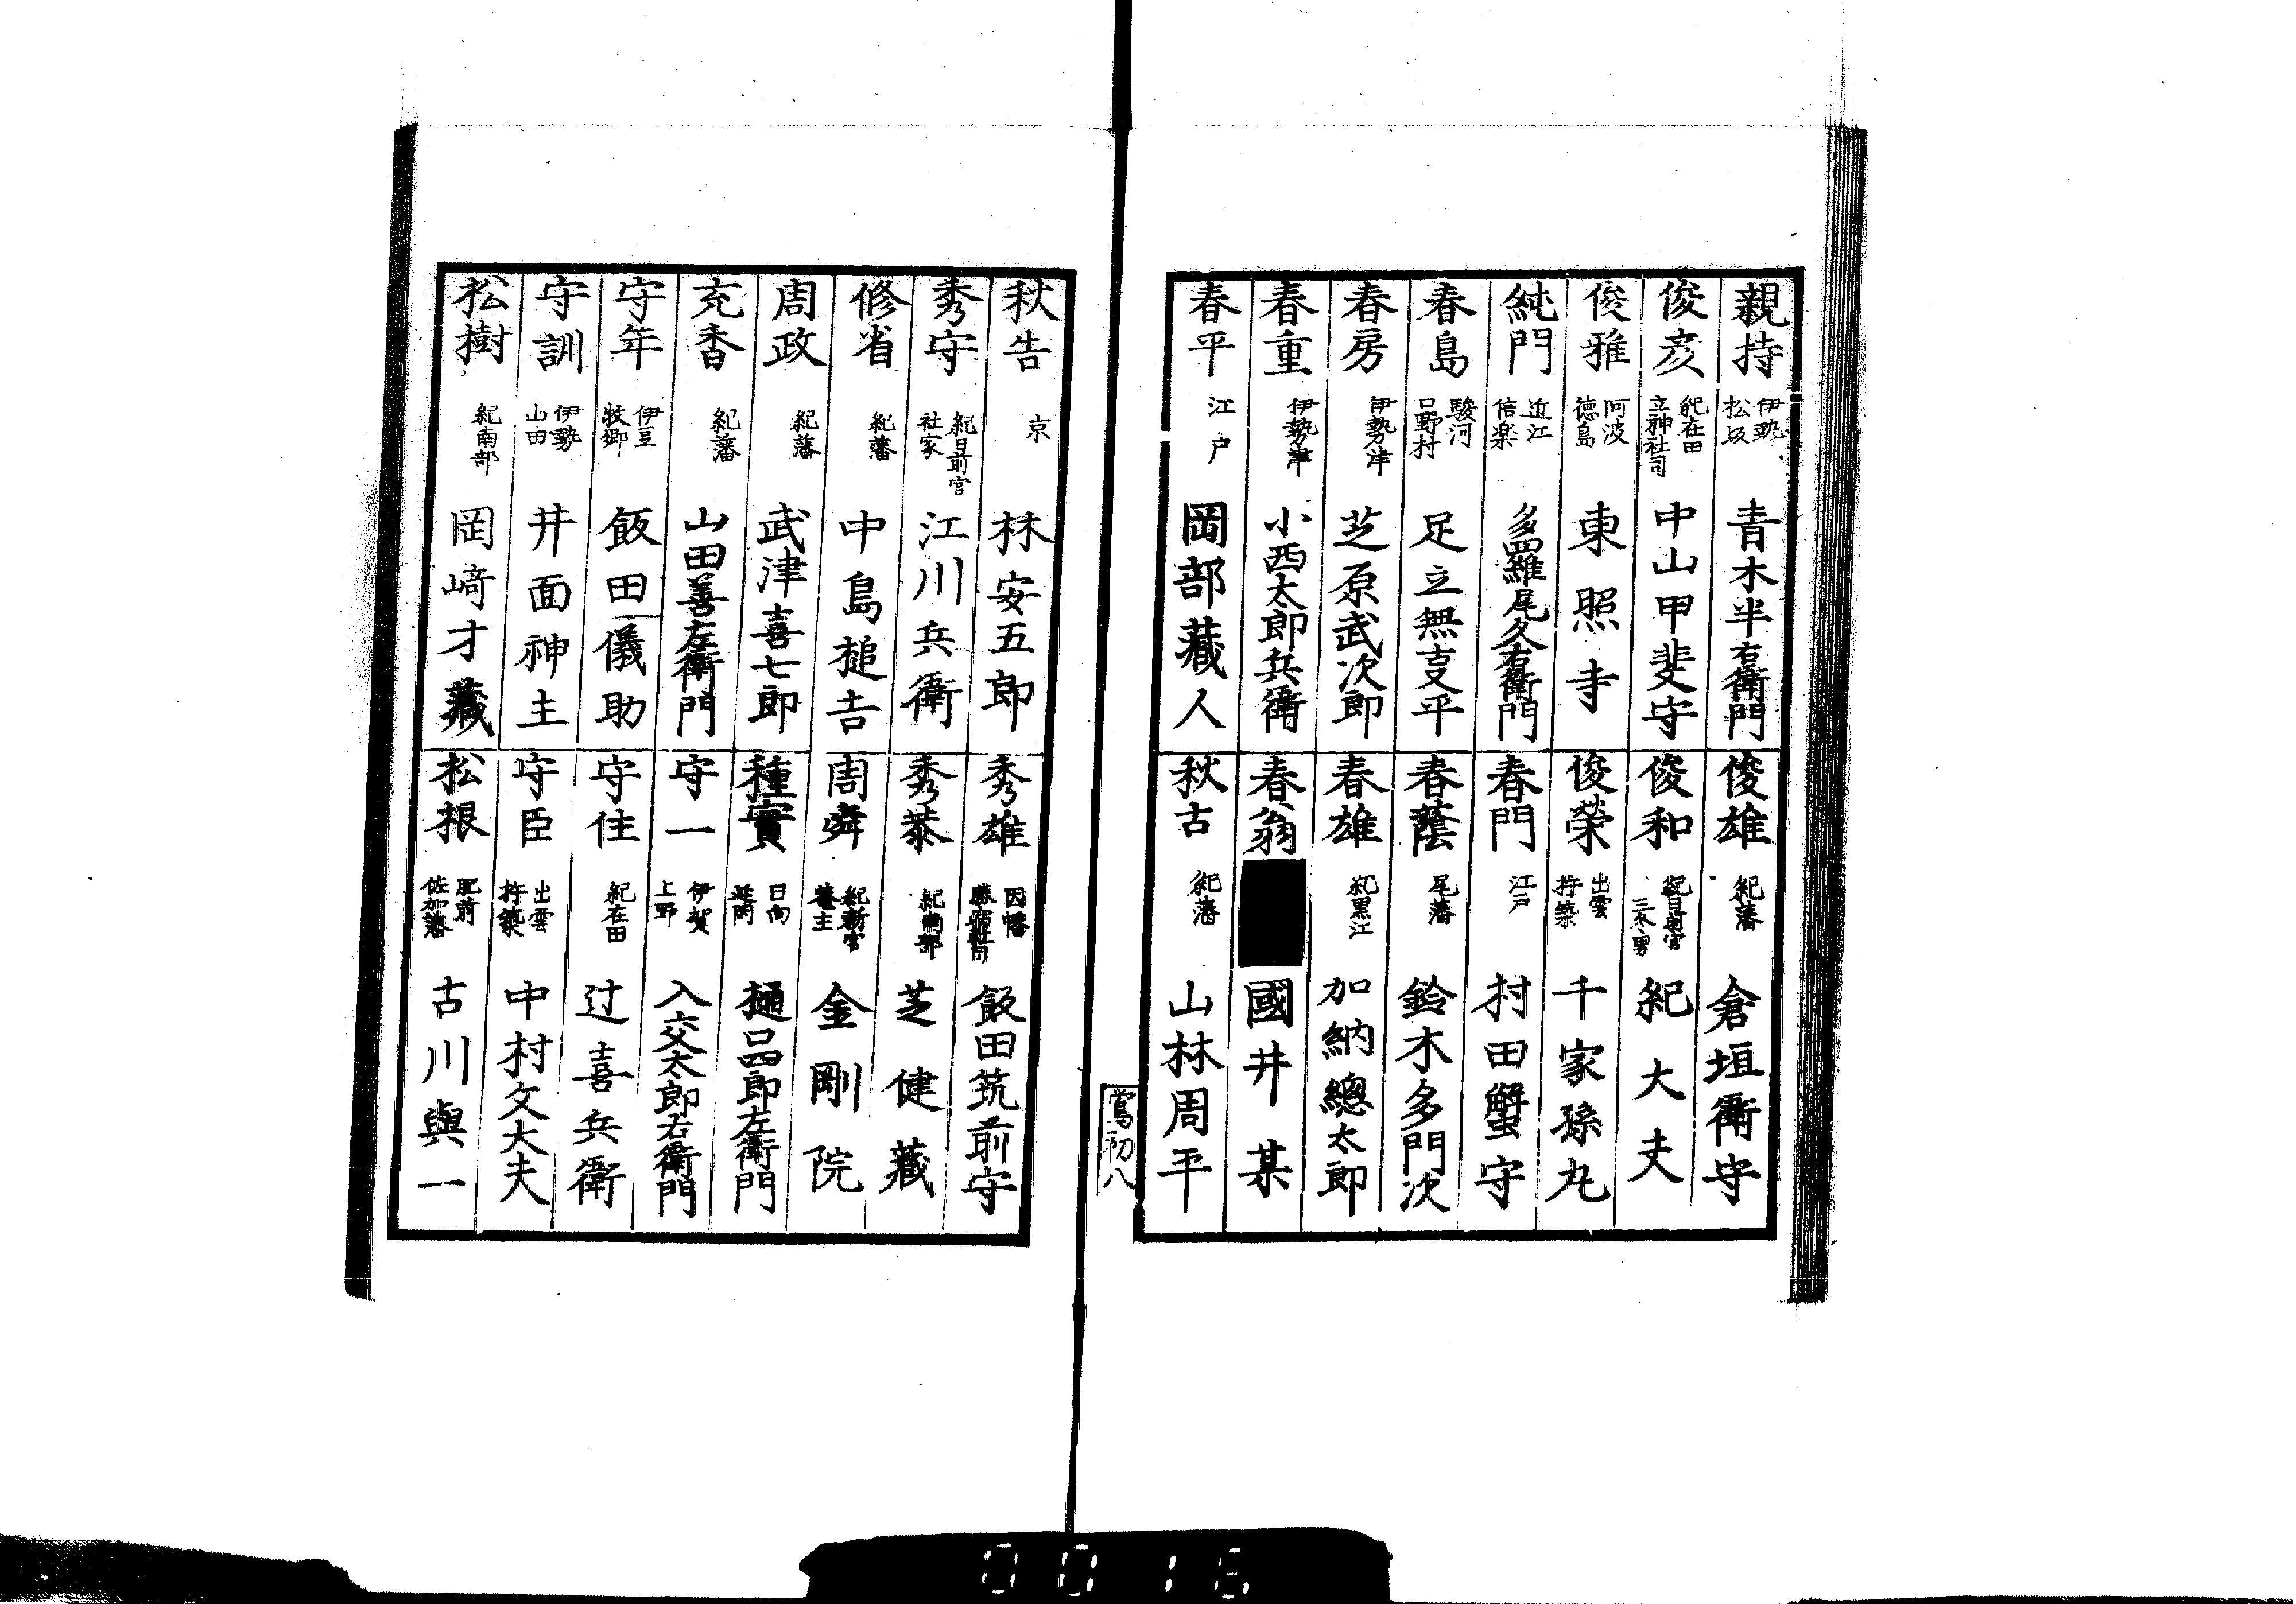 親持 伊勢松坂 青木半右衛門
俊彦 紀在田立神社司 中山甲斐守
俊雅 阿波徳島 東照寺
純門 近江信楽 多羅尾久右衛門
春島 駿河口野村 足立無吏平
春房 伊勢津 芝原武次郎
春重 伊勢津 小西太郎兵衛
春平 江戸 岡部蔵人
俊雄 紀藩 倉垣衛守
俊和 紀日前宮三冬男 紀大夫
俊榮 出雲杵築 千家孫丸
春門 江戸 村田蟹守
春蔭 尾藩 鈴木多門次
春雄 紀黒江 加納總太郎
春翁 國井某
秋古 紀藩 山林周平
鶯初八
秋告 京 林安五郎
秀守 紀日前宮社家 江川兵衛
修省 紀藩 中島槌吉
周政 紀藩 武津喜七郎
充香 紀藩 山田善左衛門
守年 伊豆牧郷 飯田儀助
守訓 伊勢山田 井面神主
松樹 紀南部 岡﨑才蔵
秀雄 因幡勝宿社司 飯田筑前守
秀恭 紀南部 芝健蔵
周舜 紀新宮菴主 金剛院
種實 日向延岡 樋口四郎左衛門
守一 伊賀上野 入交太郎右衛門
守住 紀在田 辻喜兵衛
守臣 出雲杵築 中村文大夫
松根 肥前佐加藩 古川與一
0016